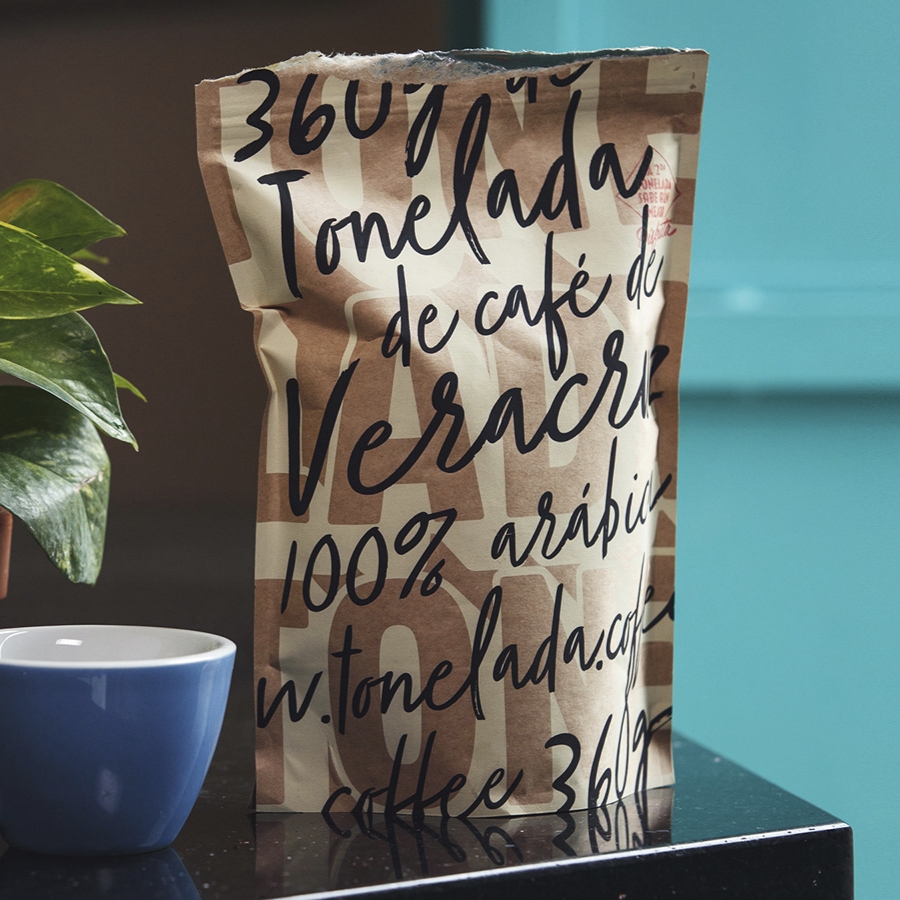 360g de
Tonelada
de café de
Veracruz
100% arábic
w.tonelada.coffee
coffee 360g
TONELADA
SABE